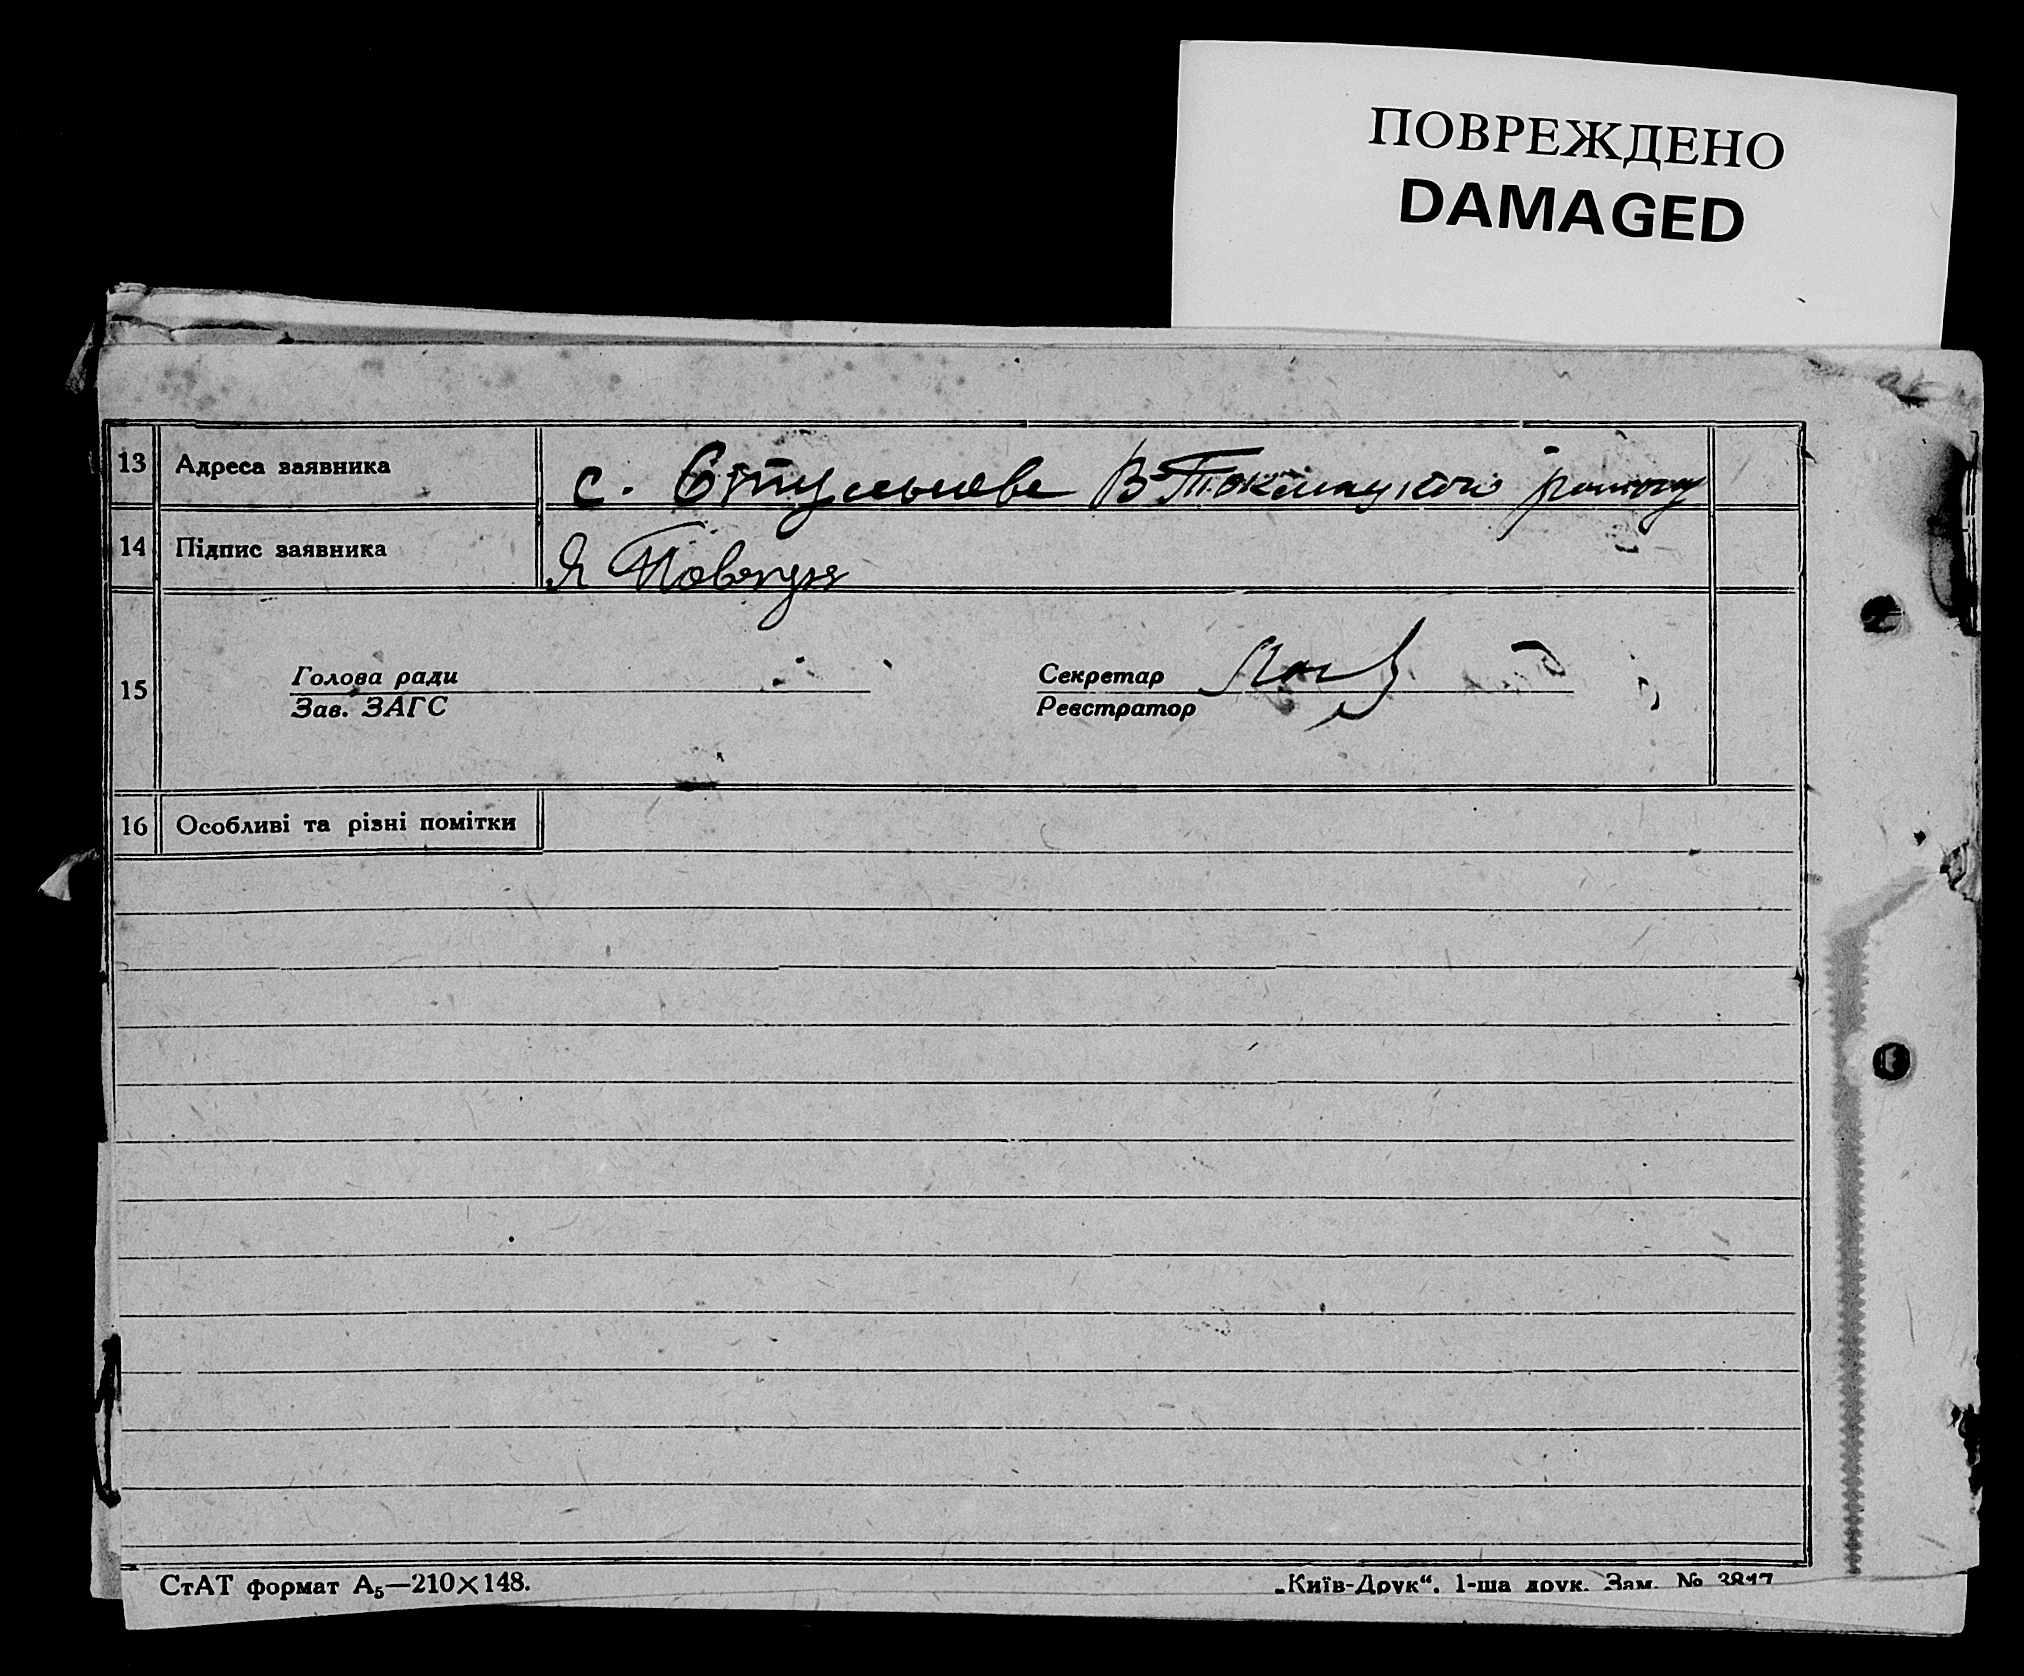 ПОВРЕЖДЕНО
DAMAGED
13 Адреса заявника с. Стульневе В-Токмацького району
14 Підпис заявника Я
Голова ради Секретар
15
Зав. ЗАГС Реєстратор
16 Особливі та різні помітки
СтАТ формат А5—210×148. „Київ-Друк“. 1-ша друк. Зам. № 3817